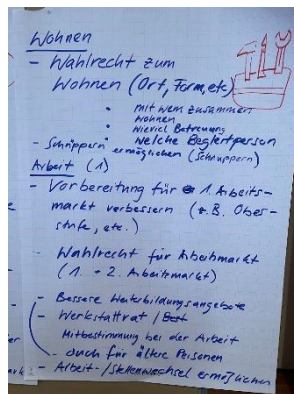 Wohnen
- Wahlrecht zum
Wohnen (Ort, Form, etc)
• mit wem zusammen
wohnen
• wieviel Betreuung
• welche Begleitperson
- Schnuppern ermöglichen (Schnuppern)
Arbeit (1)
- Vorbereitung für 1. Arbeits-
markt verbessern (z.B. Ober-
stufe, etc.)
- Wahlrecht für Arbeitmarkt
(1. + 2. Arbeitsmarkt)
- Bessere Weiterbildungsangebote
- Werkstattrat /
Mitbestimmung bei der Arbeit
- auch für ältere Personen
- Arbeit-/Stellenwechsel ermöglichen